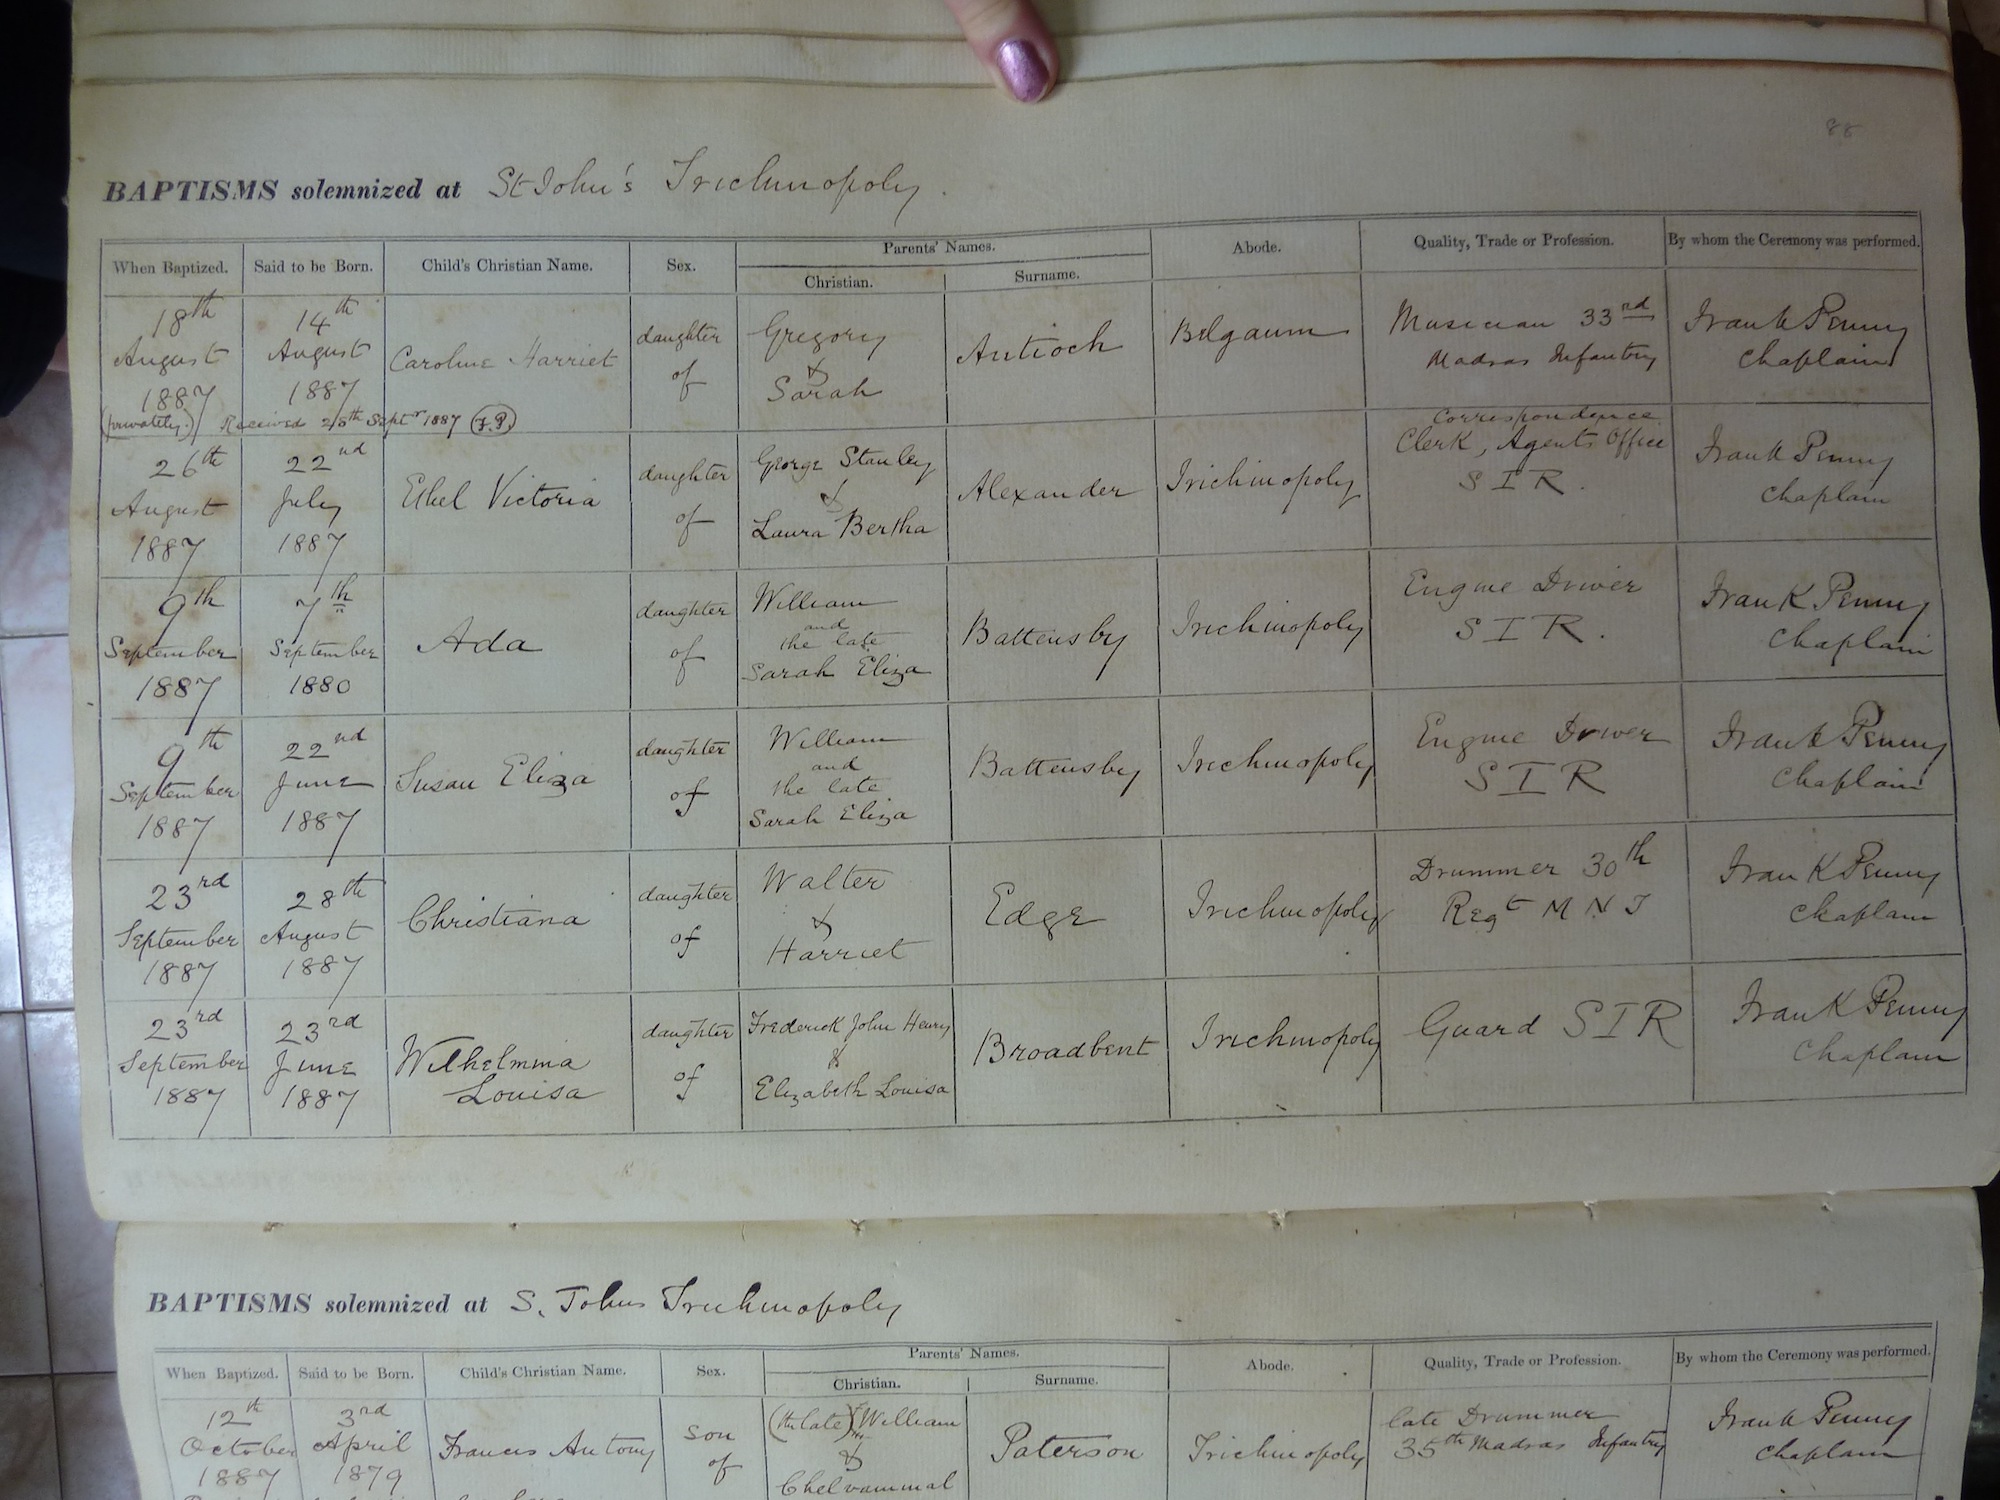 88
BAPTISMS solemnized at St John's Trichinopoly.
When Baptized. Said to be Born. Child's Christian Name. Sex. Parents' Names. Abode. Quality, Trade or Profession. By whom the Ceremony was performed.
Christian. Surname.
18th August 1887 14th August 1887 Caroline Harriet daughter of Gregory & Sarah Antioch Belgaum Musician 33rd Madras Infantry Frank Penny Chaplain
(privately.) Received 25th Septr 1887 (F.P.)
26th August 1887 22nd July 1887 Ethel Victoria daughter of George Stanley & Laura Bertha Alexander Trichinopoly Correspondence Clerk, Agents Office S I R. Frank Penny Chaplain
9th September 1887 7th September 1880 Ada daughter of William and the late Sarah Eliza Battensby Trichinopoly Engine Driver S I R. Frank Penny Chaplain
9th September 1887 22nd June 1887 Susan Eliza daughter of William and the late Sarah Eliza Battensby Trichinopoly Engine Driver S I R Frank Penny Chaplain
23rd September 1887 28th August 1887 Christiana daughter of Walter & Harriet Edge Trichinopoly Drummer 30th Regt M N I Frank Penny Chaplain
23rd September 1887 23rd June 1887 Wilhelmina Louisa daughter of Frederick John Henry & Elizabeth Louisa Broadbent Trichinopoly Guard S I R Frank Penny Chaplain
BAPTISMS solemnized at S. Johns Trichinopoly
When Baptized. Said to be Born. Child's Christian Name. Sex. Parents' Names. Abode. Quality, Trade or Profession. By whom the Ceremony was performed.
Christian. Surname.
12th October 1887 3rd April 1879 Francis Antony son of (the late) William & Chelvammal Paterson Trichinopoly late Drummer 35th Madras Infantry Frank Penny Chaplain